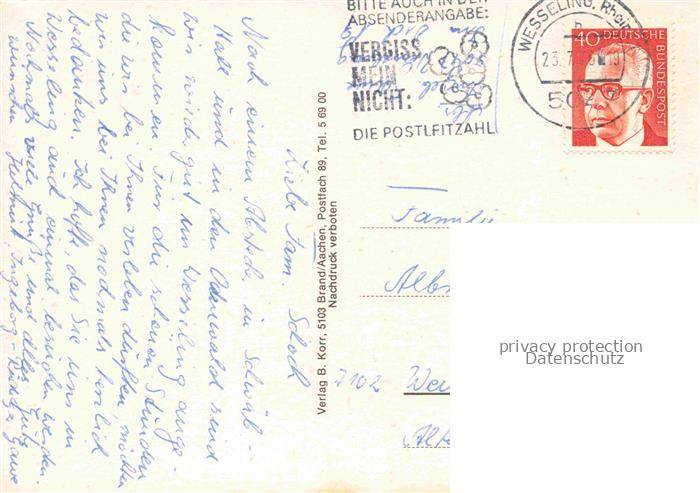 BITTE AUCH IN DER
ABSENDERANGABE:
VERGISS
MEIN
NICHT:
DIE POSTLEITZAHL
WESSELING, Rhein
23.7.
40 DEUTSCHE
BUNDESPOST
Liebe Fam. Schock
Nach einem Abstech in Schwäb-
Hall und in den Odenwald sind
wir wird gut in Wesseling ange-
kommen. Für die schönen Stunden
die wir bei Ihnen verleben durften, möchten
wir uns bei Ihnen nochmals herzlich
bedanken. Ich hoffe, das Sie uns in
Wesseling auch einmal besuchen werden.
Nochmals viele Grüße und alles Gute
wünschen Helmut Ingeborg
Verlag B. Korr, 5103 Brand/Aachen, Postfach 89, Tel. 5 69 00
Nachdruck verboten
Familie
Alb
7102 Wei
privacy protection
Datenschutz